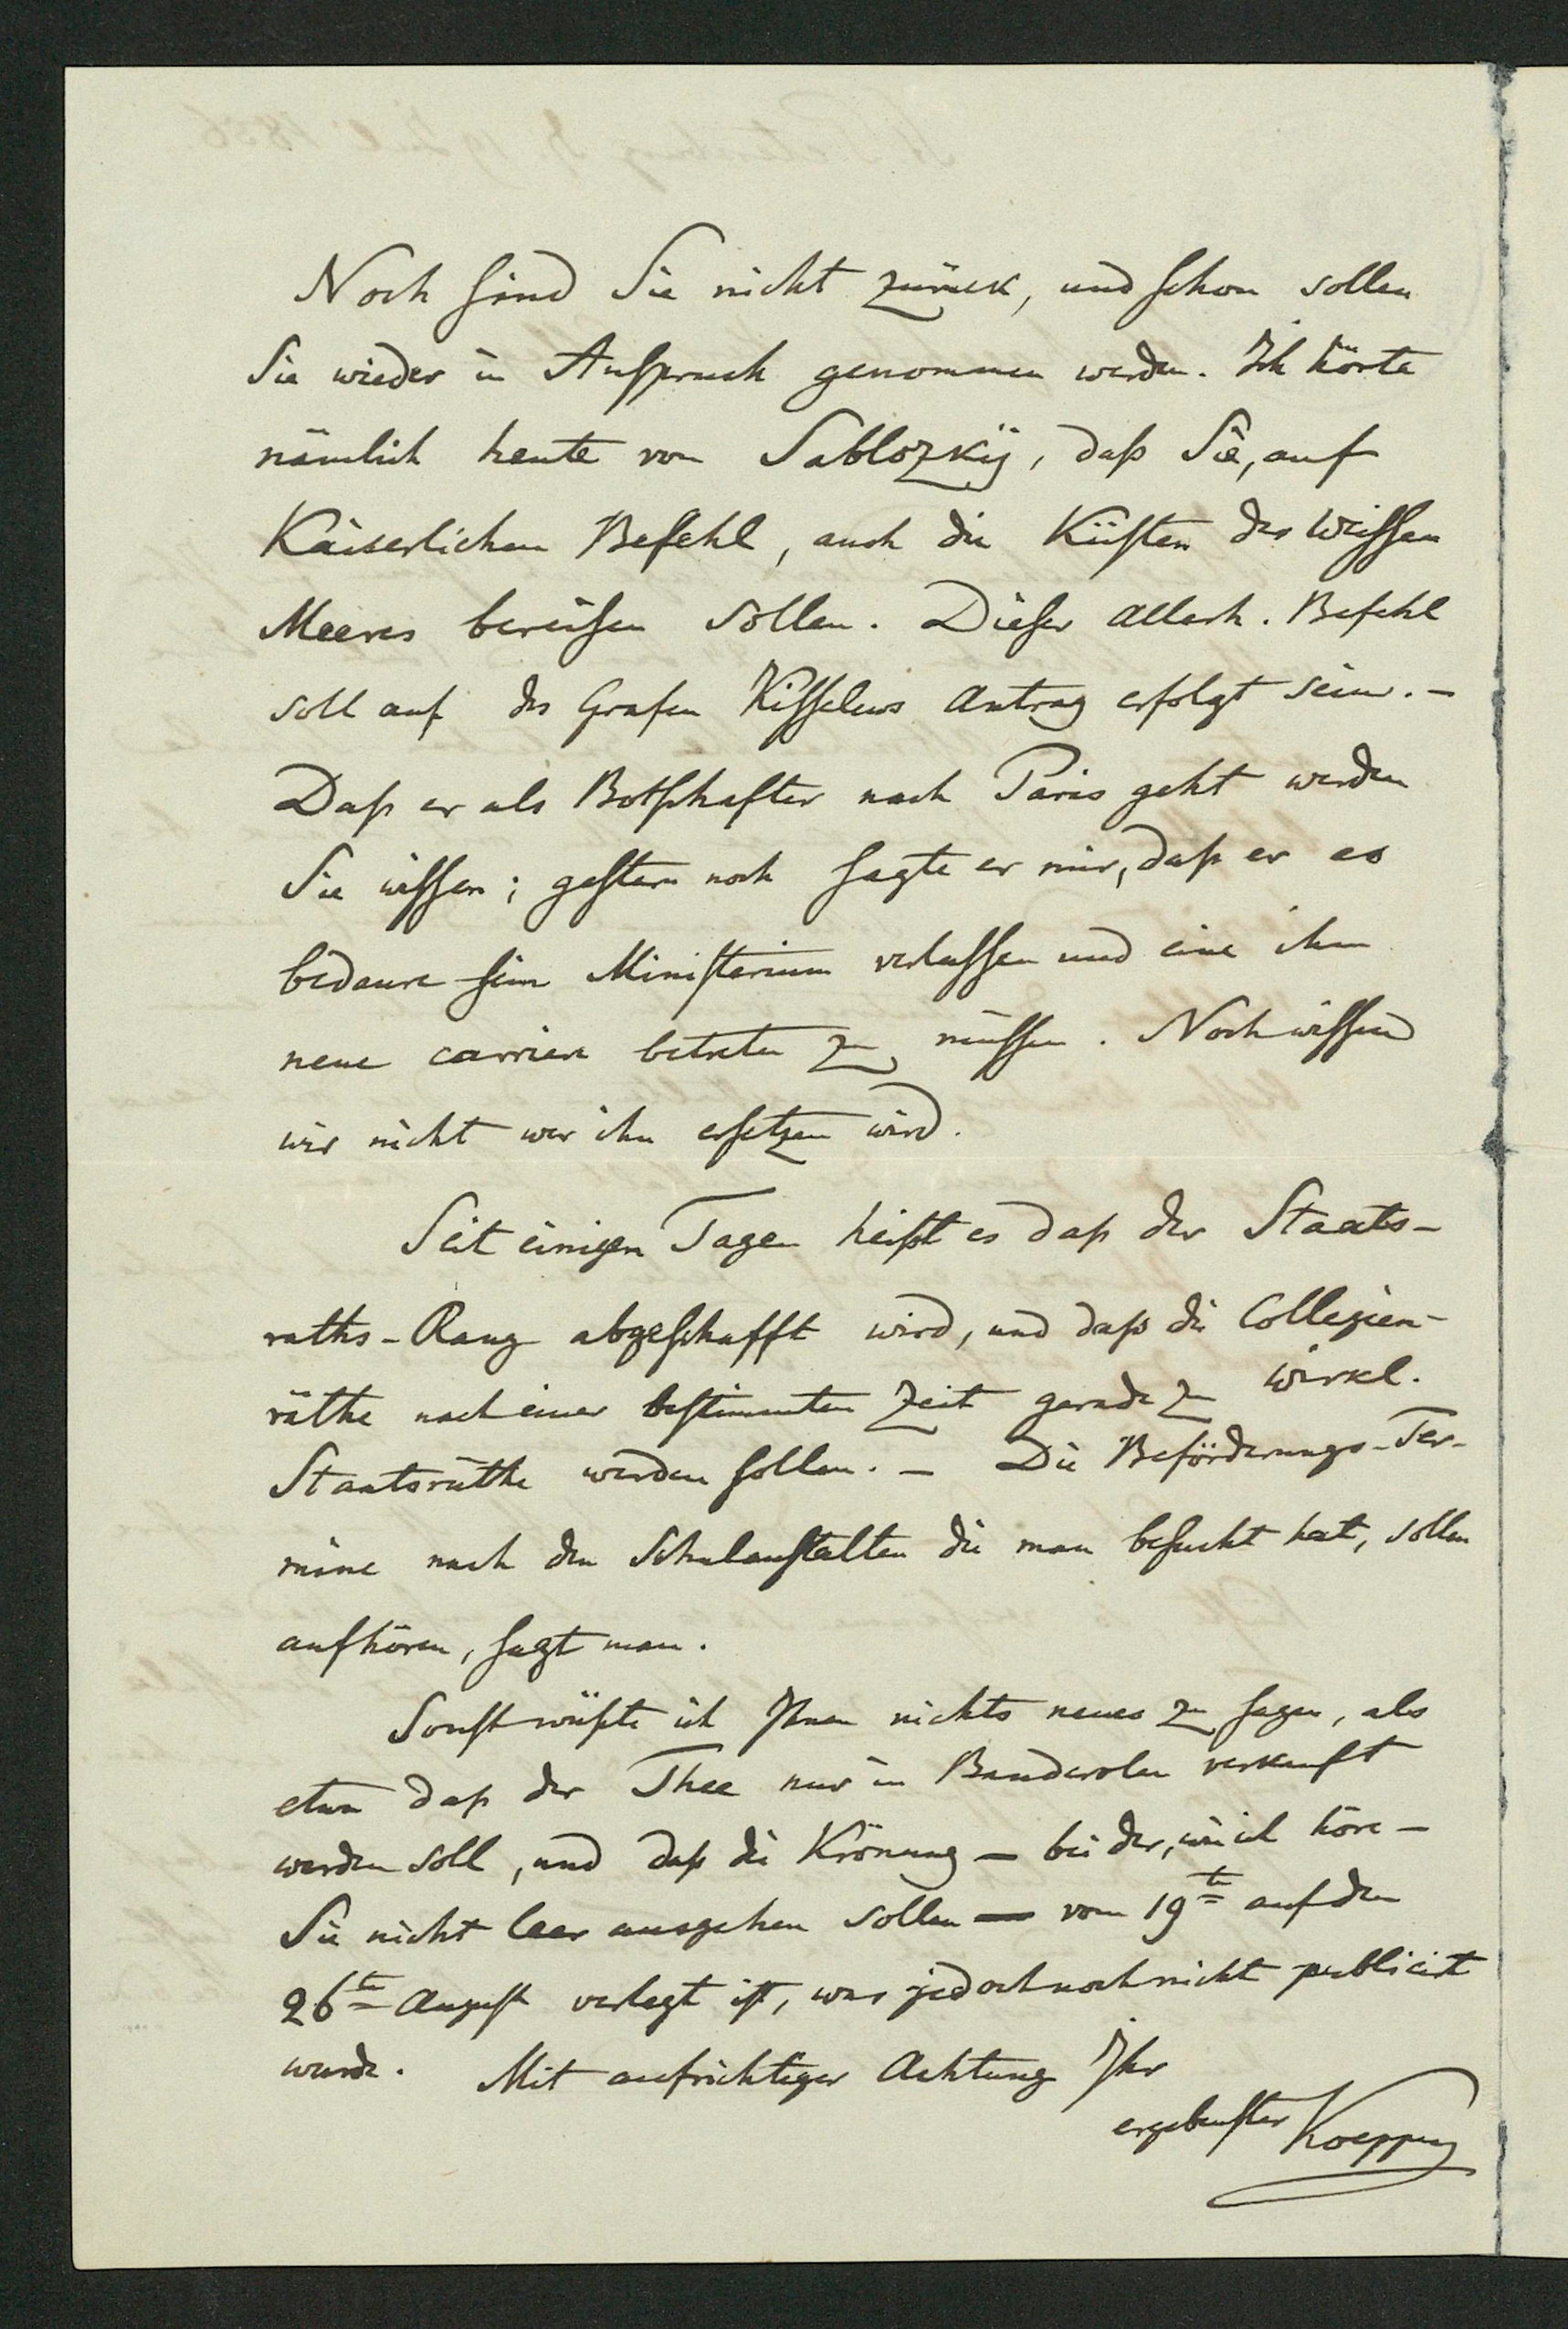 Noch sind Sie nicht zurück, und schon sollen
Sie wieder in Anspruch genommen werden. Ich hörte
nämlich heute von Sablozkij, daß Sie, auf
Kaiserlichen Befehl, auch die Küsten des Weissen
Meeres bereisen sollen. Dieser Allerh. Befehl
soll auf des Grafen Kisselews Antrag erfolgt sein. –
Daß er als Botschafter nach Paris geht werden
Sie wissen; gestern noch sagte er mir, daß er es
bedaure sein Ministerium verlassen und eine ihm
neue carriere betreten zu müssen. Noch wissen
wir nicht wer ihn ersetzen wird.
Seit einigen Tagen heißt es daß der Staats-
raths-Rang abgeschafft wird, und daß die Collegien-
räthe nach einer bestimmten Zeit gerade zu wirkl.
Staatsräthe werden sollen. – Die Beförderungs-Ter-
mine nach den Schulanstalten die man besucht hat, sollen
aufhören, sagt man.
Sonst wüßte ich Ihnen nichts neues zu sagen, als
etwa daß der Thee nur in Banderolen verkauft
werden soll, und daß die Krönung – bei der, wie ich höre –
Sie nicht leer ausgehen sollen – vom 19ten auf den
26ten August verlegt ist, was jedoch noch nicht publicirt
wurde. Mit aufrichtiger Achtung Ihr
ergebenster Koeppen